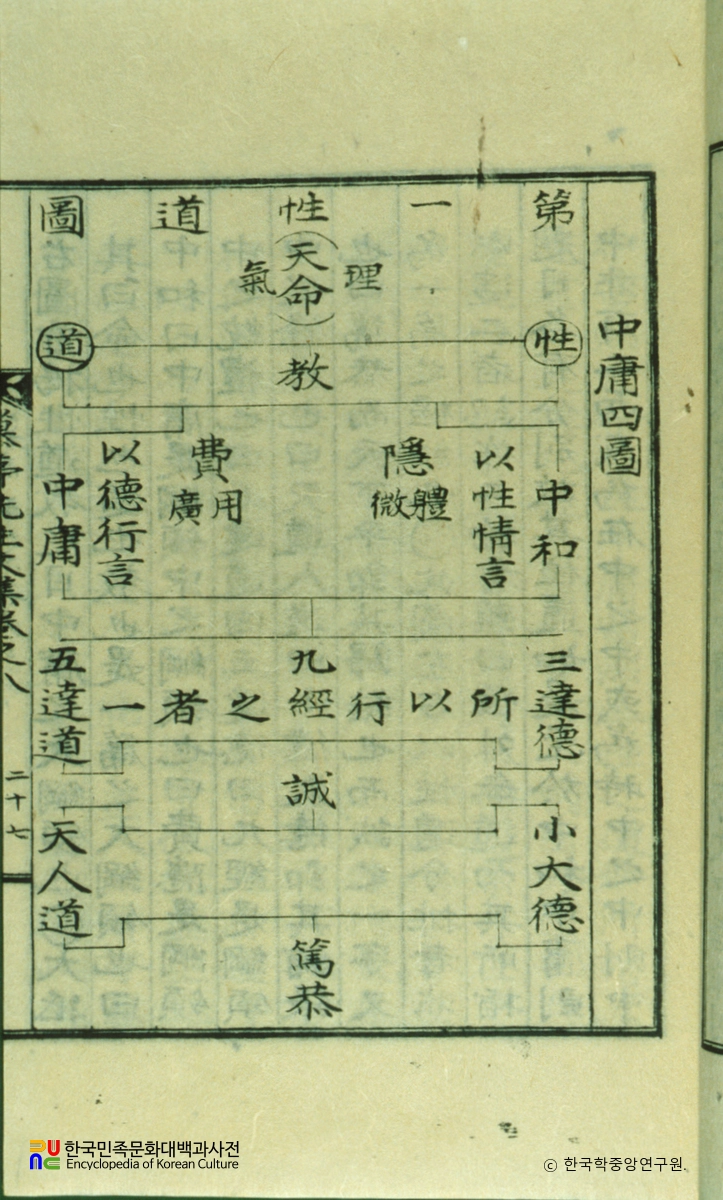 中庸四圖
第一性道圖
天命
理
氣
性
教
道
中和
以性情言
隱
體微
費
用廣
以德行言
中庸
三達德
九經
五達道
所以行之者一
誠
小大德
天人道
篤恭
先生文集卷之八
二十七
한국민족문화대백과사전
Encyclopedia of Korean Culture
ⓒ 한국학중앙연구원